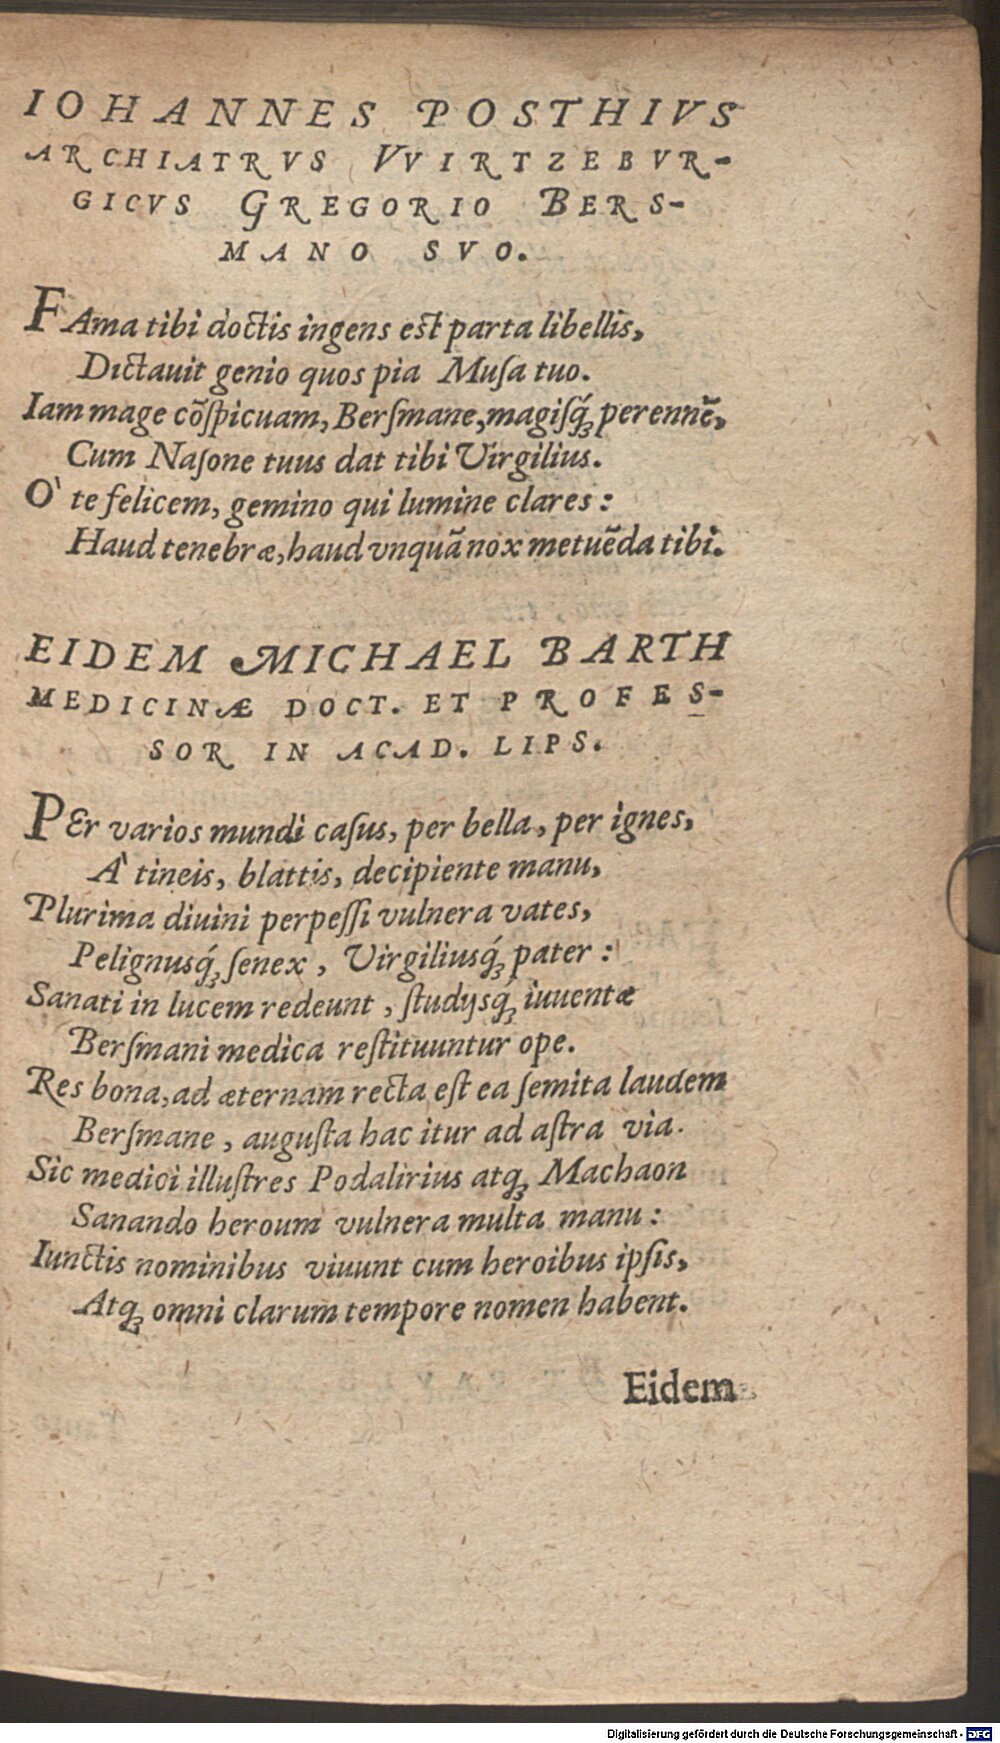 IOHANNES POSTHIVS
ARCHIATRVS VVIRTZEBVR-
GICVS GREGORIO BERS-
MANO SVO.
FAma tibi doctis ingens est parta libellis,
Dictauit genio quos pia Musa tuo.
Iam mage cõſpicuam, Berſmane, magiſq́ꝫ perennẽ,
Cum Naſone tuus dat tibi Virgilius.
O' te felicem, gemino qui lumine clares:
Haud tenebræ, haud vnquã nox metuẽda tibi.
EIDEM MICHAEL BARTH
MEDICINÆ DOCT. ET PROFES-
SOR IN ACAD. LIPS.
PEr varios mundi caſus, per bella, per ignes,
A' tineis, blattis, decipiente manu,
Plurima diuini perpeſſi vulnera vates,
Pelignusq́ꝫ ſenex, Virgiliusq́ꝫ pater:
Sanati in lucem redeunt, ſtudijsq́ꝫ iuuentæ
Berſmani medica reſtituuntur ope.
Res bona, ad æternam recta eſt ea ſemita laudem
Berſmane, auguſta hac itur ad aſtra via.
Sic medici illuſtres Podalirius atqꝫ Machaon
Sanando heroum vulnera multa manu:
Iunctis nominibus viuunt cum heroibus ipſis,
Atqꝫ omni clarum tempore nomen habent.
Eidem
Digitalisierung gefördert durch die Deutsche Forschungsgemeinschaft - DFG